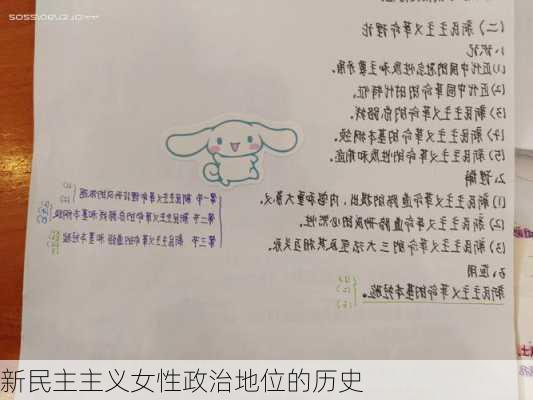 (二)新民主主义革命理论
1、识记
(1)近代中国的社会性质和主要矛盾。
(2)近代中国革命的时代特征。
(3)新民主主义革命的总路线。
(4)新民主主义革命的基本纲领。
(5)新民主主义革命的性质和前途。
2、理解
(1)新民主主义革命道路的提出、内容和重大意义。
(2)新民主主义革命道路形成的必然性。
(3)新民主主义革命的三大法宝及其相互关系。
3、应用
新民主主义革命的基本经验。
第一节 新民主主义革命理论形成的依据
第二节 新民主主义革命的总路线和基本纲领
第三节 新民主主义革命的道路和基本经验
新民主主义女性政治地位的历史